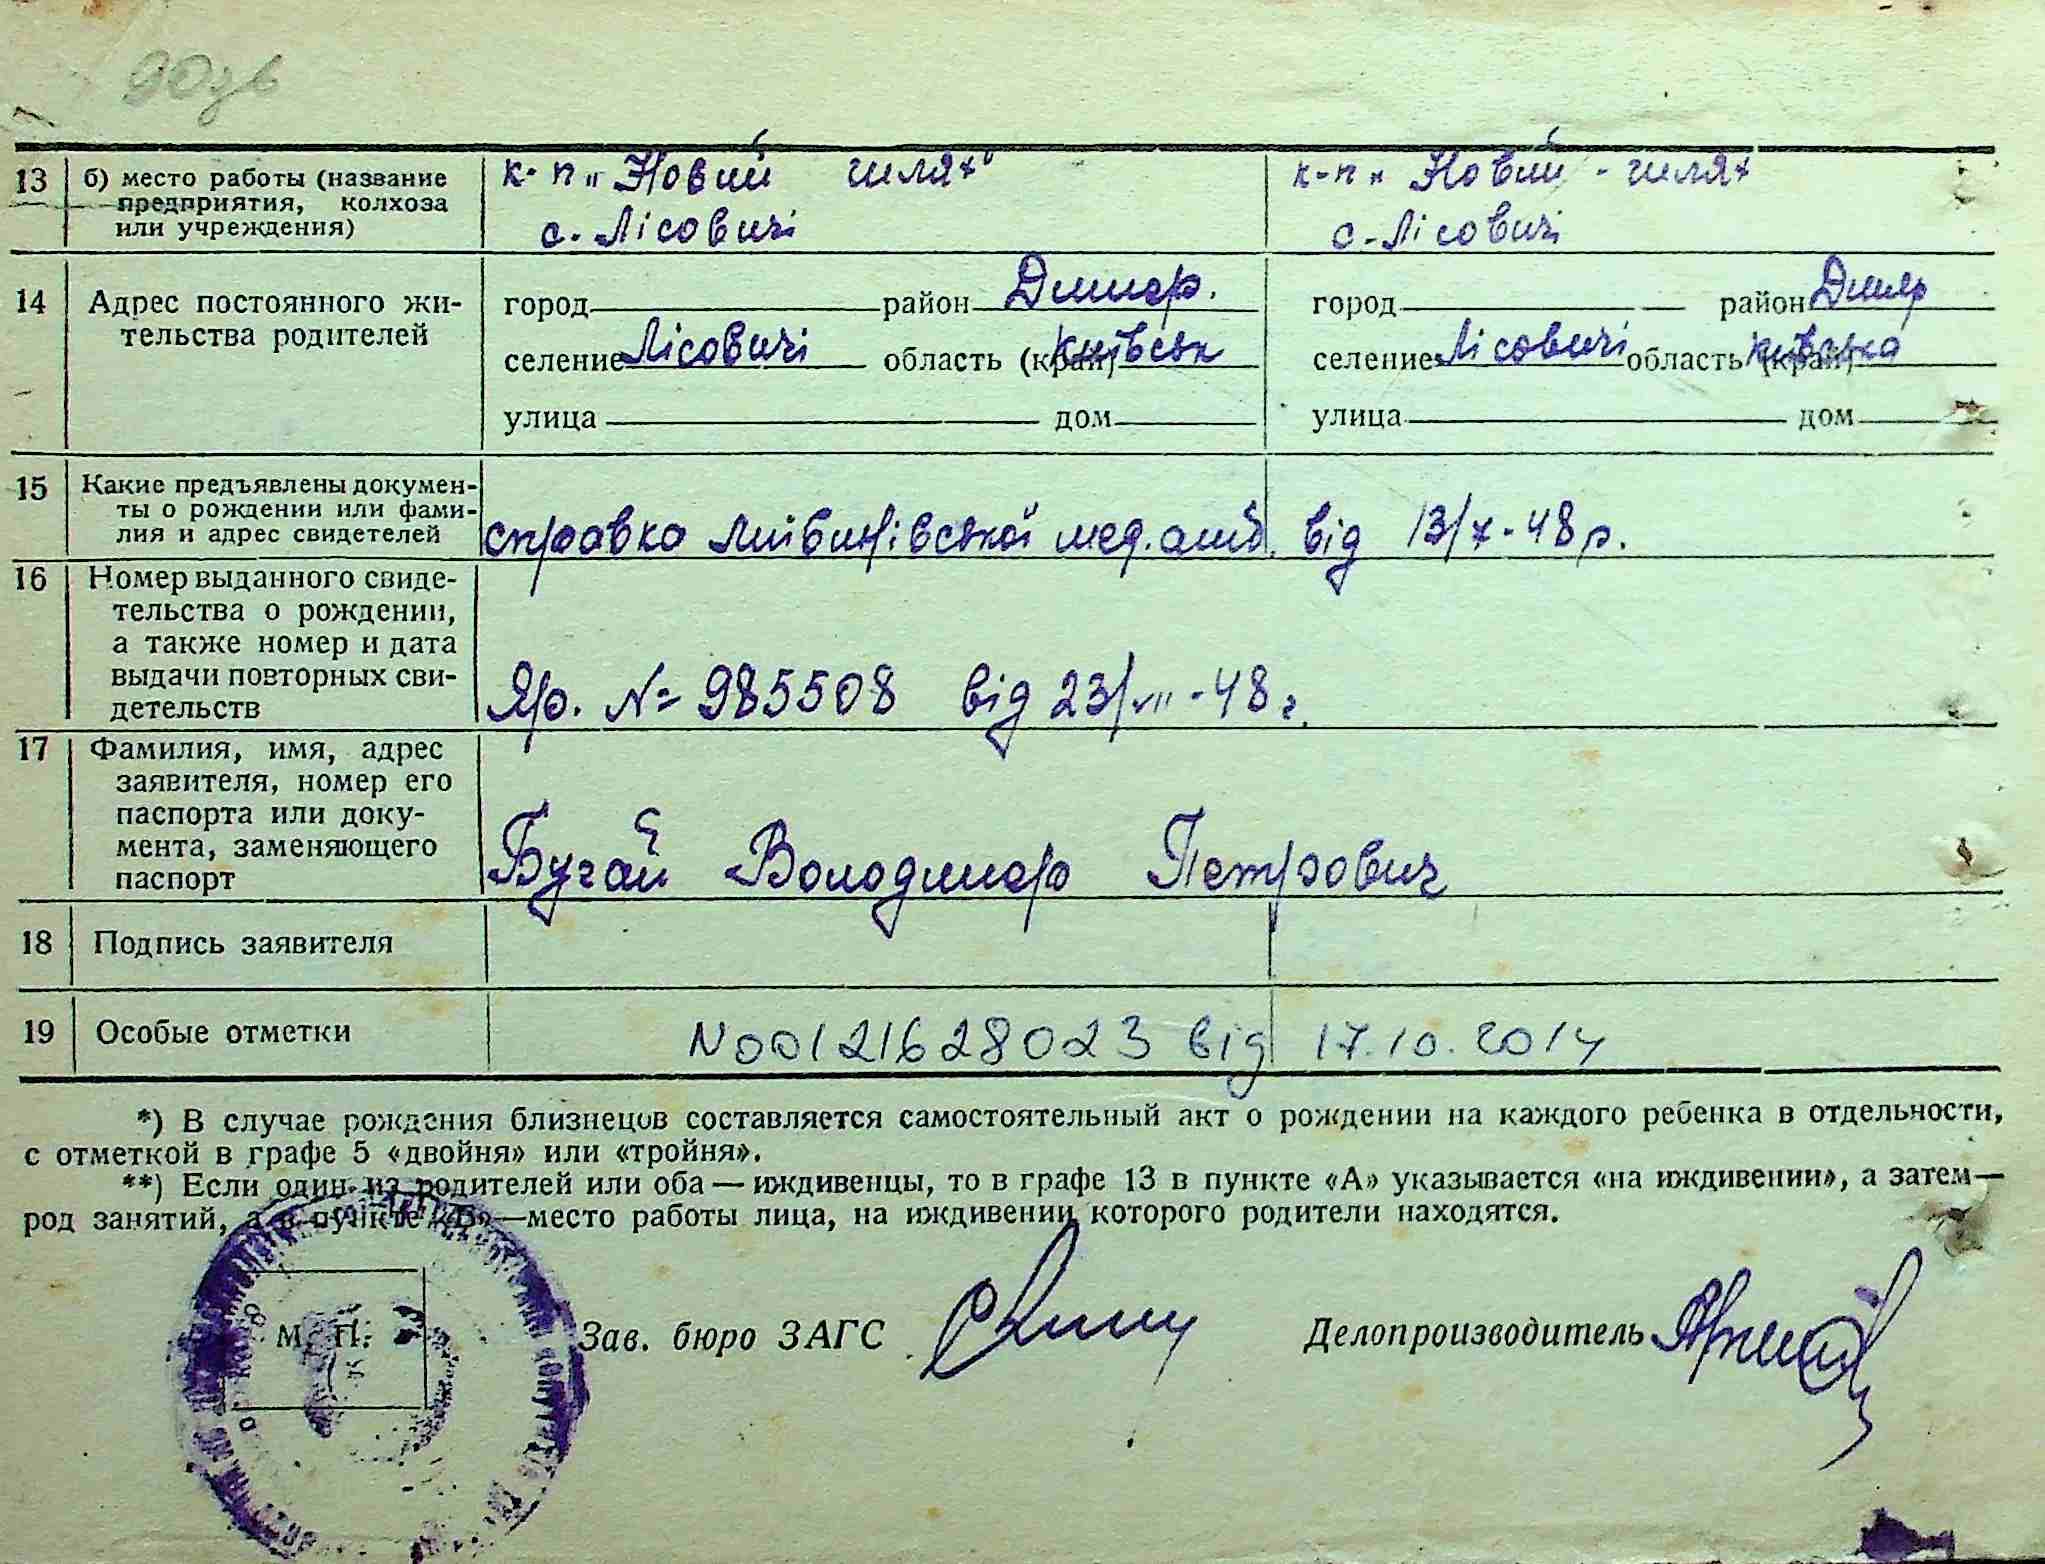 90зв
13 б) место работы (название предприятия, колхоза или учреждения) к-п „Новий шлях“ с. Лісовичі к-п „Новий - шлях с. Лісовичі
14 Адрес постоянного жи-
тельства родителей
город район Димер. город район Димер
селение Лісовичі область (край) київськ селение Лісовичі область (край) київська
улица дом улица дом
15 Какие предъявлены докумен-
ты о рождении или фами-
лия и адрес свидетелей
справка мед. амб. від 13/X-48 р.
16 Номер выданного свиде-
тельства о рождении,
а также номер и дата
выдачи повторных сви-
детельств
Яр. № 985508 від 23/ -48 г.
17 Фамилия, имя, адрес
заявителя, номер его
паспорта или доку-
мента, заменяющего
паспорт
Бугай Володимер Петрович
18 Подпись заявителя
19 Особые отметки N00121628023 від 17.10.2014
*) В случае рождения близнецов составляется самостоятельный акт о рождении на каждого ребенка в отдельности,
с отметкой в графе 5 «двойня» или «тройня».
**) Если один из родителей или оба — иждивенцы, то в графе 13 в пункте «А» указывается «на иждивении», а затем —
род занятий, а в пункте «Б» — место работы лица, на иждивении которого родители находятся.
М. П. Зав. бюро ЗАГС Делопроизводитель